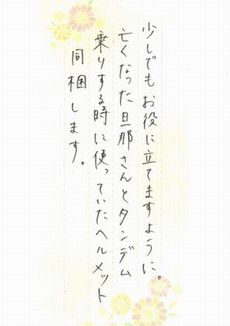 少しでもお役に立てますように。
亡くなった旦那さんとタンデム
乗りする時に使っていたヘルメット
同梱します。